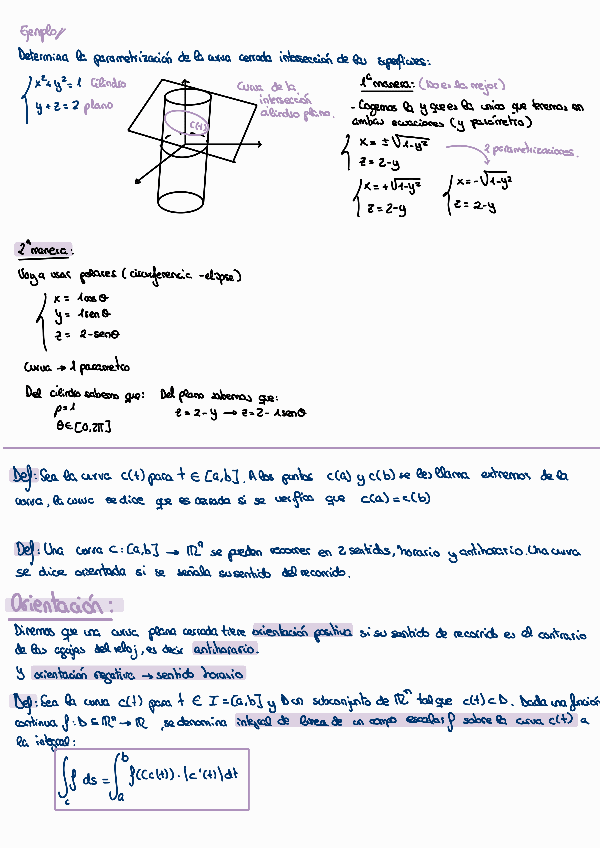 Ejemplo//
Determina la parametrización de la curva cerrada intersección de las superficies:
x²+y²=1 Cilindro
y+z=2 plano
C(t)
Curva de la
intersección
cilindro plano.
1ª manera: (No es la mejor)
- Cogemos la y que es la única que tenemos en
ambas ecuaciones (y parámetro)
x = ±√1-y²
z = 2-y
2 parametrizaciones.
x = +√1-y²
z = 2-y
x = -√1-y²
z = 2-y
2ª manera:
Voy a usar polares (circunferencia - elipse)
x = 1cosθ
y = 1senθ
z = 2-senθ
Curva → 1 parametro
Del cilindro sabemos que:
ρ=1
θ∈[0,2π]
Del plano sabemos que:
z = 2-y → z = 2-1senθ
Def: Sea la curva c(t) para t ∈ [a,b]. A los puntos c(a) y c(b) se les llama extremos de la
curva, la curva se dice que es cerrada si se verifica que c(a)=c(b)
Def: Una curva C:[a,b] → ℝⁿ se pueden recorrer en 2 sentidos, horario y antihorario. Una curva
se dice orientada si se señala su sentido del recorrido.
Orientación:
Diremos que una curva plana cerrada tiene orientación positiva si su sentido de recorrido es el contrario
de las agujas del reloj, es decir antihorario.
Y orientación negativa → sentido horario
Def: Sea la curva c(t) para t ∈ I = [a,b] y D un subconjunto de ℝⁿ tal que c(t) ⊂ D. Dada una función
continua f: D ⊆ ℝⁿ → ℝ, se denomina integral de línea de un campo escalar f sobre la curva c(t) a
la integral:
∫_c f ds = ∫_a^b f(c(t)) · |c'(t)| dt